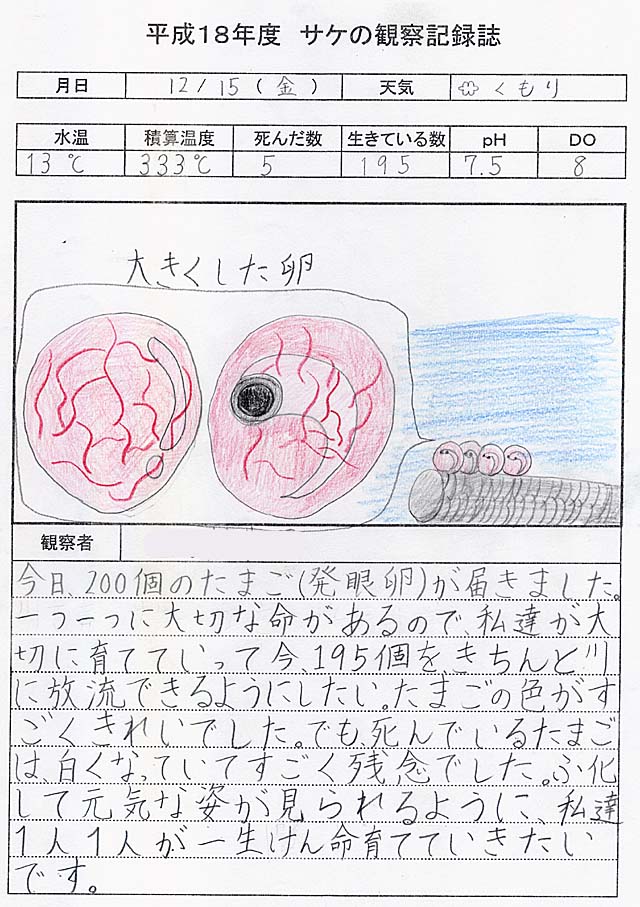 平成18年度 サケの観察記録誌
月日 12/15(金) 天気 くもり
水温 積算温度 死んだ数 生きている数 pH DO
13℃ 333℃ 5 195 7.5 8
大きくした卵
観察者
今日、200個のたまご(発眼卵)が届きました。
一つ一つに大切な命があるので、私達が大
切に育てていって今、195個を、きちんと川
に放流できるようにしたい。たまごの色がす
ごくきれいでした。でも、死んでいるたまご
は、白くなっていてすごく残念でした。ふ化
して元気な姿が見られるように、私達
1人1人が一生けん命育てていきたい
です。